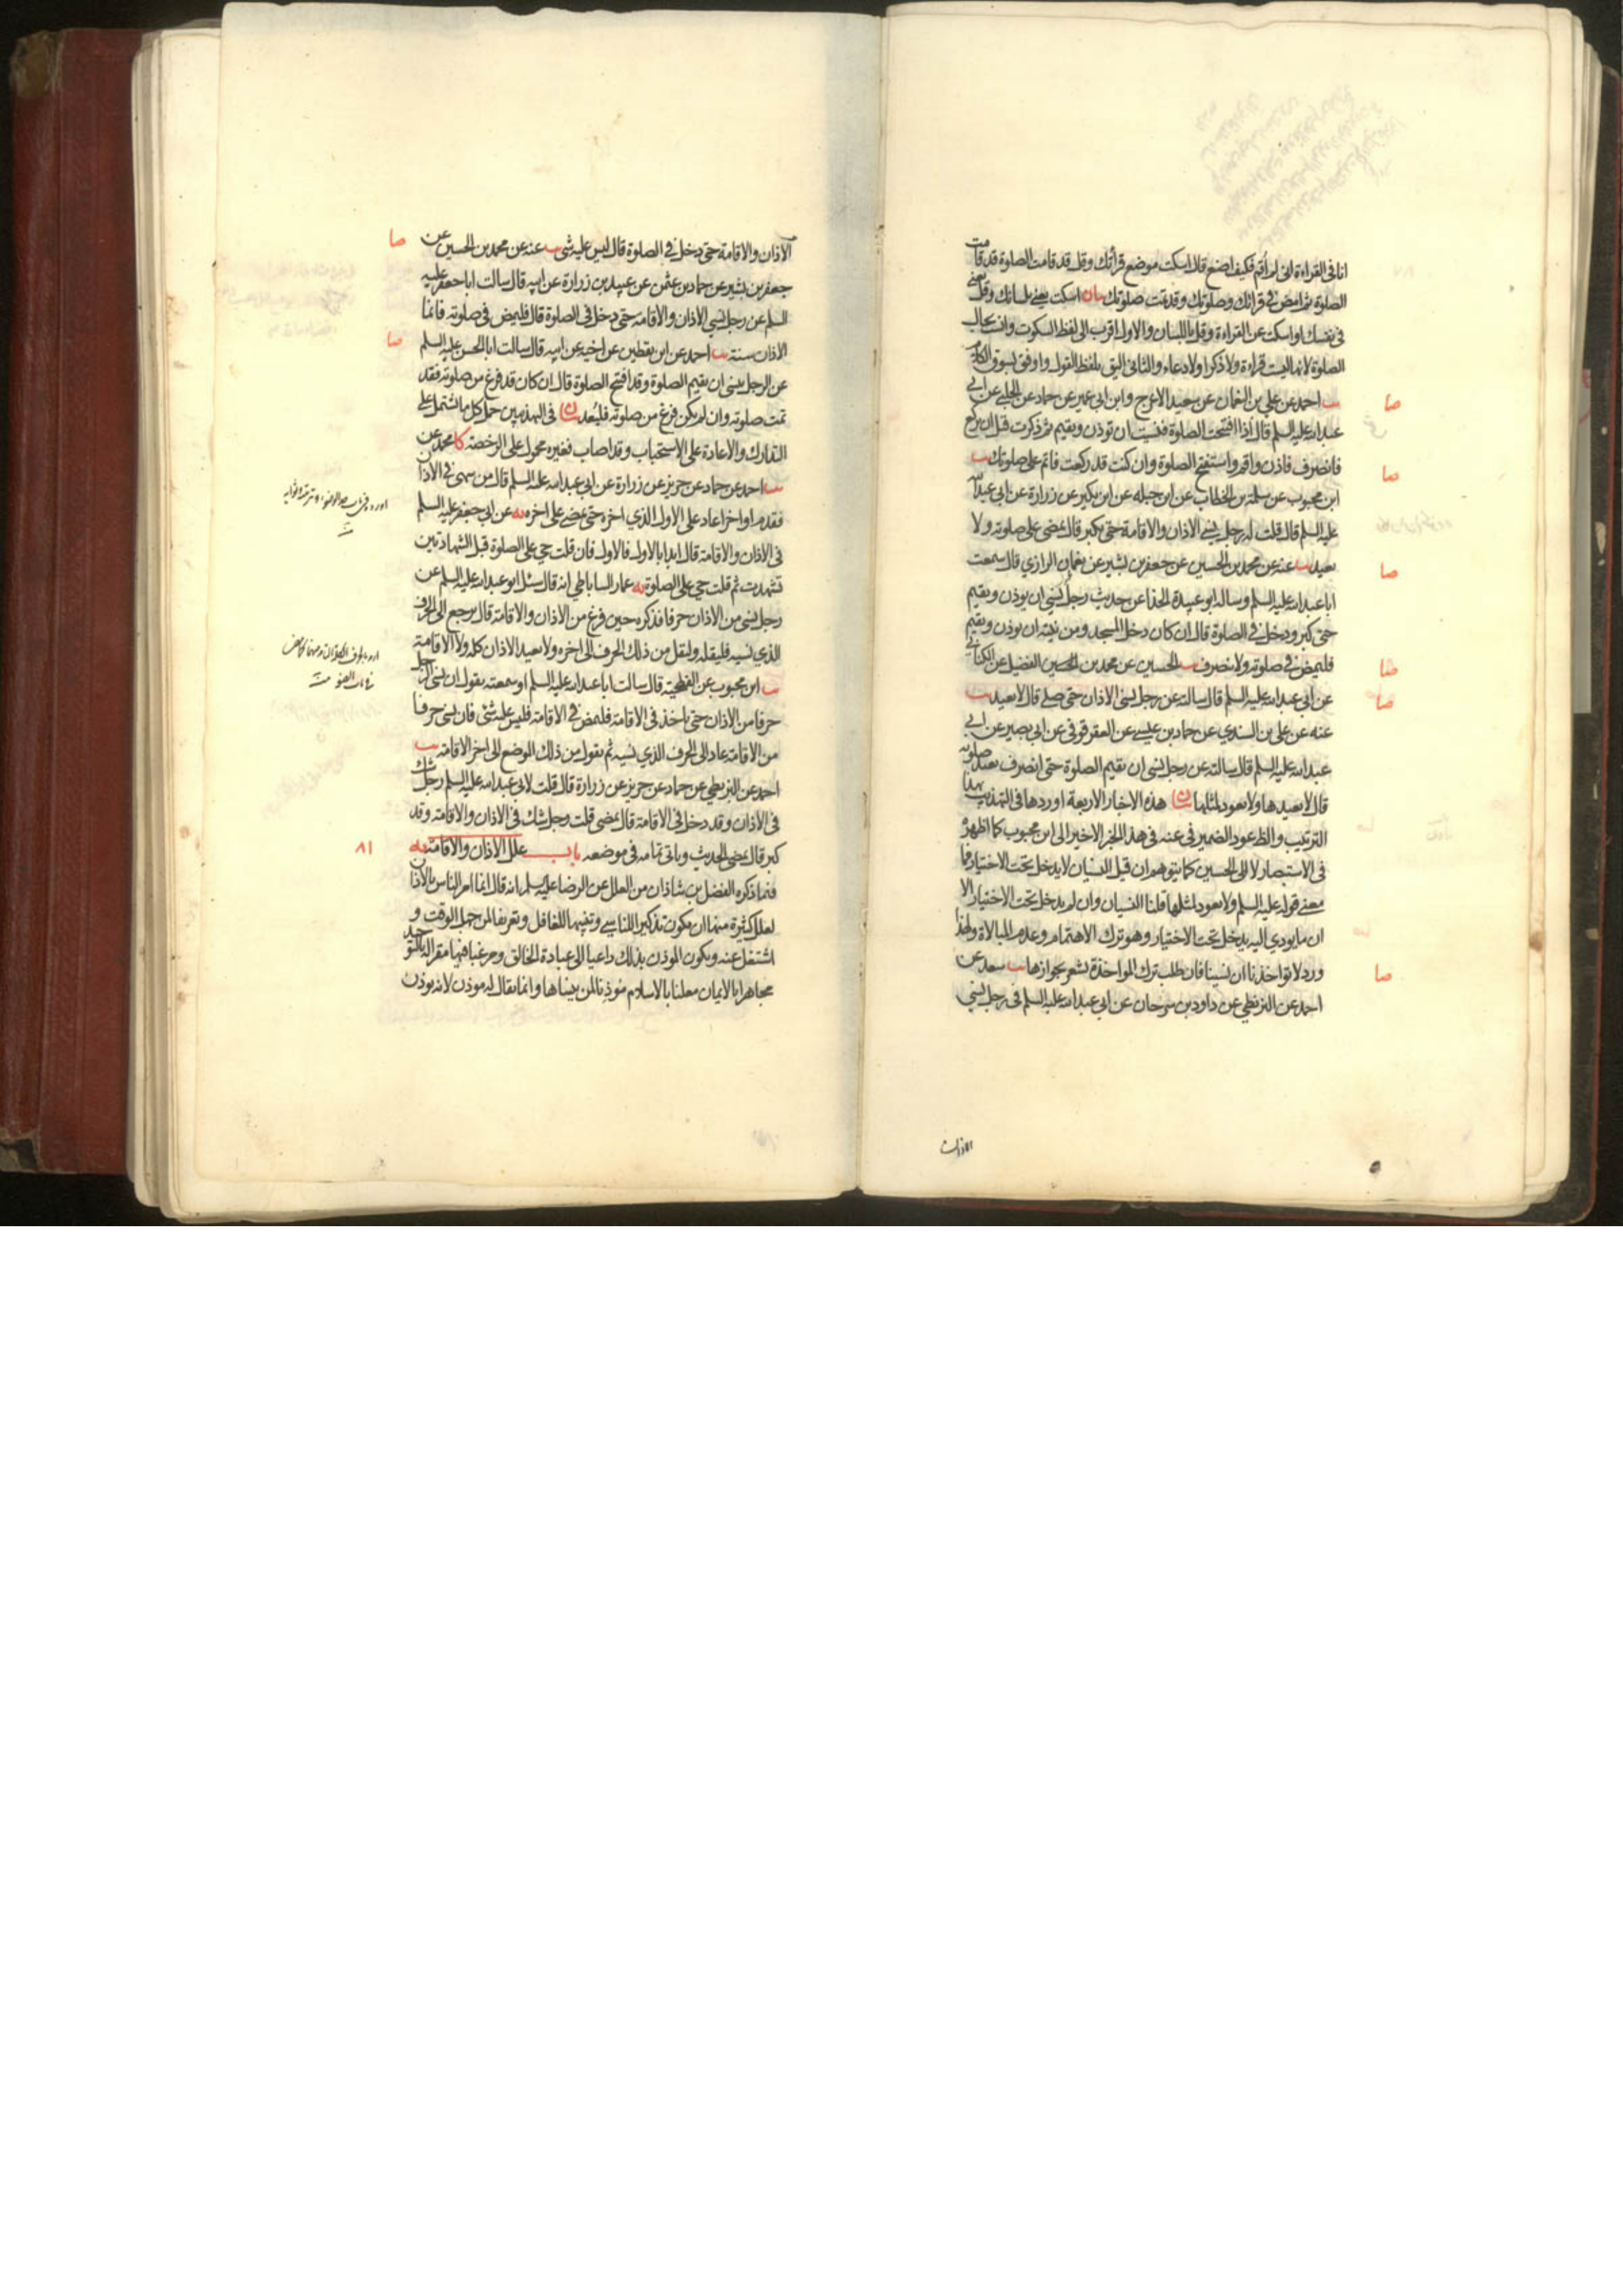 انا فى القراءة انى لم اقم فكيف اصنع قال اسكت موضع قرأتك وقل قد قامت الصلوة قد قامت
الصلوة ثم امض فى قرائتك وصلوتك وقد تمت صلوتك بيان اسكت يعنى بلسانك وقل يعنى
فى نفسك او اسكت عن القراءة وقل باللسان والاول اقرب الى لفظ السكوت وانت بحال
الصلوة لانها ليست قراءة ولا ذكرا ولا دعاء والثانى اليق بلفظ القول واوفق لسوق الكلام
يب احمد عن على بن النعمان عن سعيد الاعرج وابن ابى عمير عن حماد عن الحلبى عن ابى
عبد الله عليه السلم قال اذا افتتحت الصلوة فنسيت ان توذن وتقيم ثم ذكرت قبل ان تركع
فانصرف فاذن واقم واستفتح الصلوة وان كنت قد ركعت فاتم على صلوتك يب
ابن محبوب عن سلمة بن الخطاب عن ابن جبله عن ابن بكير عن زرارة عن ابى عبد الله
عليه السلم قال قلت له رجل ينسى الاذان والاقامة حتى يكبر قال يمضى على صلوته ولا
يعيد يب عنه عن محمد بن الحسين عن جعفر بن بشير عن نعمان الرازي قال سمعت
ابا عبد الله عليه السلم وساله ابو عبيدة الحذا عن حديث رجل نسى ان يوذن ويقيم
حتى كبر ودخل فى الصلوة قال ان كان دخل المسجد ومن نيته ان يوذن ويقيم
فليمض فى صلوته ولا ينصرف يب الحسين عن محمد بن الحسين الفضيل عن الكنانى
عن ابى عبد الله عليه السلم قال سالته عن رجل نسى الاذان حتى صلى قال لا يعيد يب
عنه عن على بن السندي عن حماد بن عيسى عن العقرقوفى عن ابى بصير عن ابى
عبد الله عليه السلم قال سالته عن رجل نسى ان يقيم الصلوة حتى انصرف يعيد صلوته
قال لا يعيدها ولا يعود لمثلها بيان هذه الاخبار الاربعة اوردها فى التهذيب بهذا
الترتيب والظ عود الضمير فى عنه فى هذا الخبر الاخير الى ابن محبوب كما اظهره
فى الاستبصار لا الى الحسين كما يتوهم ان قيل النسيان لا يدخل تحت الاختيار فما
معنى قوله عليه السلم ولا يعود لمثلها قلنا النسيان وان لم يدخل تحت الاختيار الا
ان ما يودي اليه يدخل تحت الاختيار وهو ترك الاهتمام وعدم المبالاة ولهذا
ورد لا تؤاخذنا ان نسينا فان طلب ترك المواخذة يشعر بجوازها يب سعد عن
احمد عن البزنطي عن داود بن سرحان عن ابى عبد الله عليه السلم فى رجل نسى
الاذان
صا
صا
صا
صا
صا
صا
الاذان والاقامة حتى دخل فى الصلوة قال ليس عليه شئ يب عنه عن محمد بن الحسين عن
جعفر بن بشير عن حماد بن عثمن عن عبيد بن زرارة عن ابيه قال سالت ابا جعفر عليه
السلم عن رجل نسى الاذان والاقامة حتى دخل فى الصلوة قال فليمض فى صلوته فانما
الاذان سنة يب احمد عن ابن يقطين عن اخيه عن ابيه قال سالت ابا الحسن عليه السلم
عن الرجل ينسى ان يقيم الصلوة وقد افتتح الصلوة قال ان كان قد فرغ من صلوته فقد
تمت صلوته وان لم يكن فرغ من صلوته فليعد بيان فى التهذيبين حمل كل ما اشتمل على
التدارك والاعادة على الاستحباب وقد اصاب فغيره محمول على الرخصة كا محمد عن
يب احمد عن حماد عن حريز عن زرارة عن ابى عبد الله عليه السلم قال من سهى فى الاذان
فقدم او اخر اعاد على الاول الذي اخره حتى يمضى على اخره يه عن ابى جعفر عليه السلم
فى الاذان والاقامة قال ابدا بالاول فالاول فان قلت حي على الصلوة قبل الشهادتين
تشهدت ثم قلت حي على الصلوة يه عمار الساباطي انه قال سئل ابو عبد الله عليه السلم عن
رجل نسى من الاذان حرفا فذكره حين فرغ من الاذان والاقامة قال يرجع الى الحرف
الذي نسيه فليقله وليقل من ذلك الحرف الى اخره ولا يعيد الاذان كله ولا الاقامة
يب ابن محبوب عن الفطحية قال سالت ابا عبد الله عليه السلم او سمعته يقول ان نسى الرجل
حرفا من الاذان حتى ياخذ فى الاقامة فليمض فى الاقامة فليس عليه شئ فان نسى حرفا
من الاقامة عاد الى الحرف الذي نسيه ثم يقول من ذلك الموضع الى اخر الاقامة يب
احمد عن البزنطي عن حماد عن حريز عن زرارة قال قلت لابى عبد الله عليه السلم رجل شك
فى الاذان وقد دخل فى الاقامة قال يمضى قلت رجل شك فى الاذان والاقامة وقد
كبر قال يمضى الحديث وياتى تمامه فى موضعه باب علل الاذان والاقامة يه
فيما ذكره الفضل بن شاذان من العلل عن الرضا عليه السلم انه قال انما امر الناس بالاذان
لعلل كثيرة منها ان يكون تذكيرا للناسى وتنبيها للغافل وتعريفا لمن جهل الوقت و
اشتغل عنه ويكون الموذن بذلك داعيا الى عبادة الخالق ومرغبا فيها مقرا له بالتوحيد
مجاهرا بالايمان معلنا بالاسلام موذنا لمن ينساها وانما يقال له موذن لانه يوذن
صا
صا
٨١